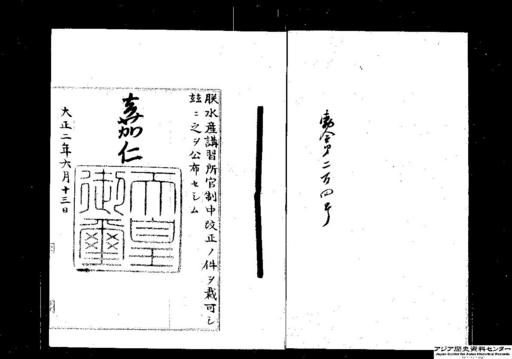 勅令第二百四号
朕水産講習所官制中改正ノ件ヲ裁可シ
玆ニ之ヲ公布セシム
嘉仁
天皇御璽
大正二年六月十三日
アジア歴史資料センター
Japan Center for Asian Historical Records